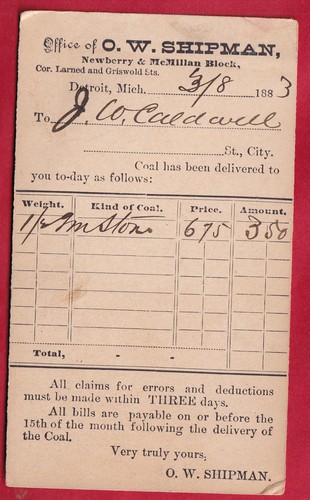 Office of O. W. SHIPMAN,
Newberry & McMillan Block,
Cor. Larned and Griswold Sts.
Detroit, Mich. 3/8 1883
To J. W. Caldwell
St., City.
Coal has been delivered to
you to-day as follows:
Weight. Kind of Coal. Price. Amount.
1/2 Stove 675 350
Total, - -
All claims for errors and deductions
must be made within THREE days.
All bills are payable on or before the
15th of the month following the delivery of
the Coal.
Very truly yours,
O. W. SHIPMAN.